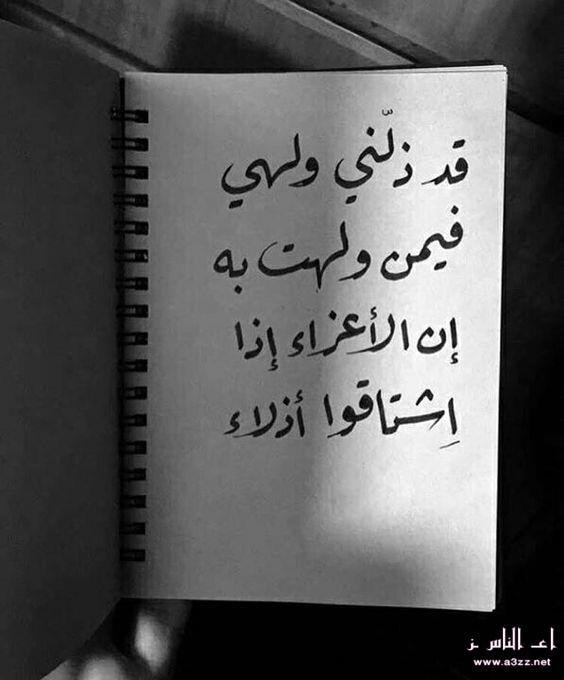 قد ذلّني ولهي
فيمن ولهت به
إن الأعزاء إذا
اِشتاقوا أذلاء
اعـ الناس ـز
www.a3zz.net